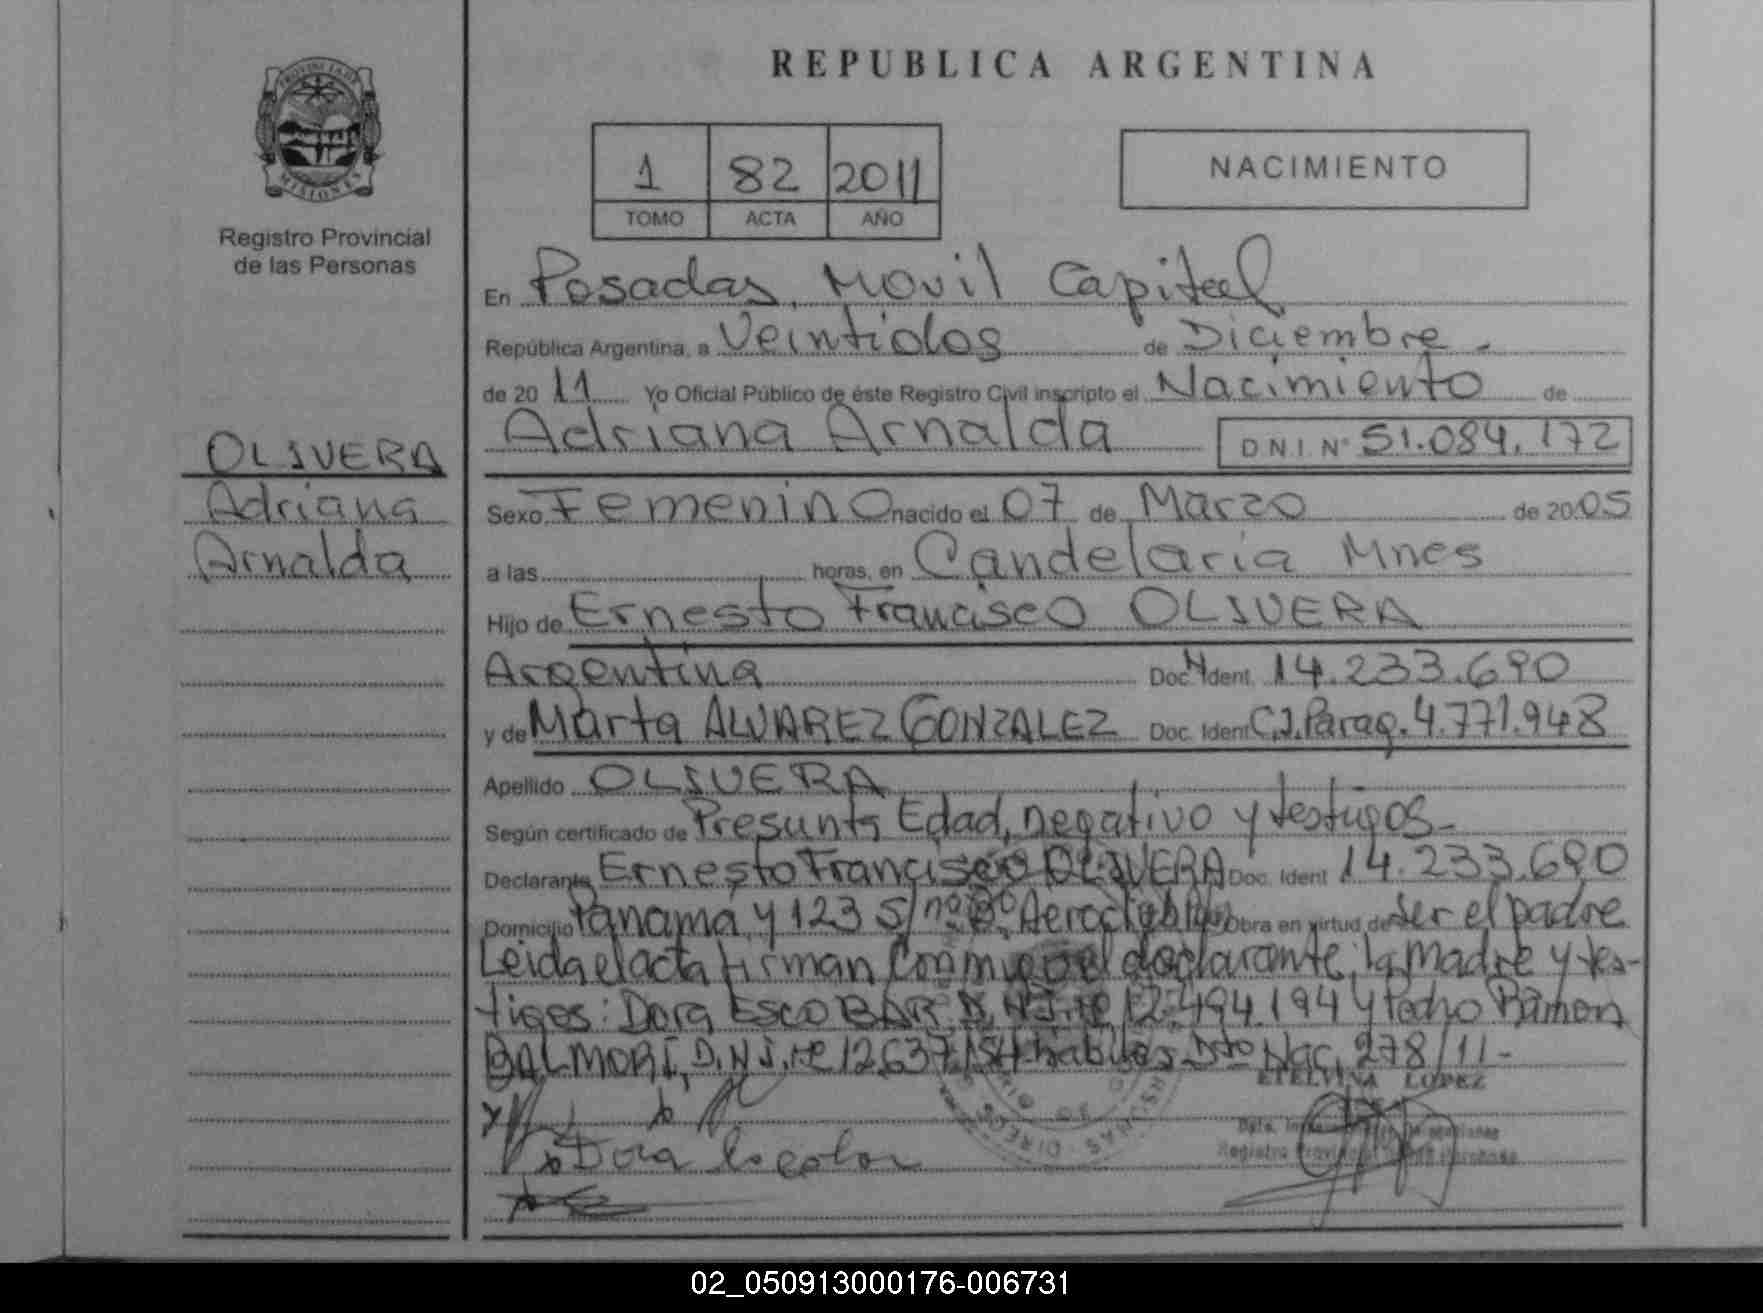 REPUBLICA ARGENTINA
PROVINCIA DE
MISIONES
Registro Provincial
de las Personas
1 82 2011
TOMO ACTA AÑO
NACIMIENTO
En Posadas, Movil Capital
República Argentina, a Veintidos de Diciembre.
de 20 11 Yo Oficial Público de éste Registro Civil inscripto el Nacimiento de
Adriana Arnalda D.N.I. Nº 51.084.172
OLIVERA
Adriana
Arnalda
Sexo Femenino nacido el 07 de Marzo de 2005
a las horas, en Candelaria Mnes
Hijo de Ernesto Francisco OLIVERA
Argentina Doc. Ident. 14.233.690
y de Marta ALVAREZ GONZALEZ Doc. Ident C.I. Parag. 4.771.948
Apellido OLIVERA
Según certificado de Presunta Edad, negativo y testigos-
Declarante Ernesto Francisco OLIVERA Doc. Ident 14.233.690
Domicilio Panamá y 123 s/nº Bº Aeroclub Obra en virtud de Ser el padre
Leida el acta firman Conmigo el declarante, la madre y tes-
tigos: Dora ESCOBAR D.N.I. Nº 12.494.194 y Pedro Ramon
BALMORI, D.N.I. Nº 12.637.154 habiles Dto Nac. 278/11-
ETELVINA LOPEZ
Dora
Registro Provincial
02_050913000176-006731